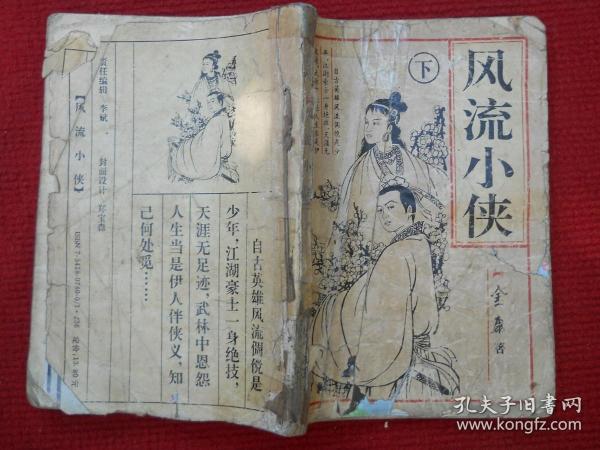 风流小侠
下
金庸 著
自古英雄风流倜傥是
少年，江湖豪士一身绝技，
天涯无足迹，武林中恩怨
人生当是伊人伴侠义，知
己何处觅……
责任编辑 李斌
封面设计 郑宝森
【风流小侠】
孔夫子旧书网
www.kongfz.com